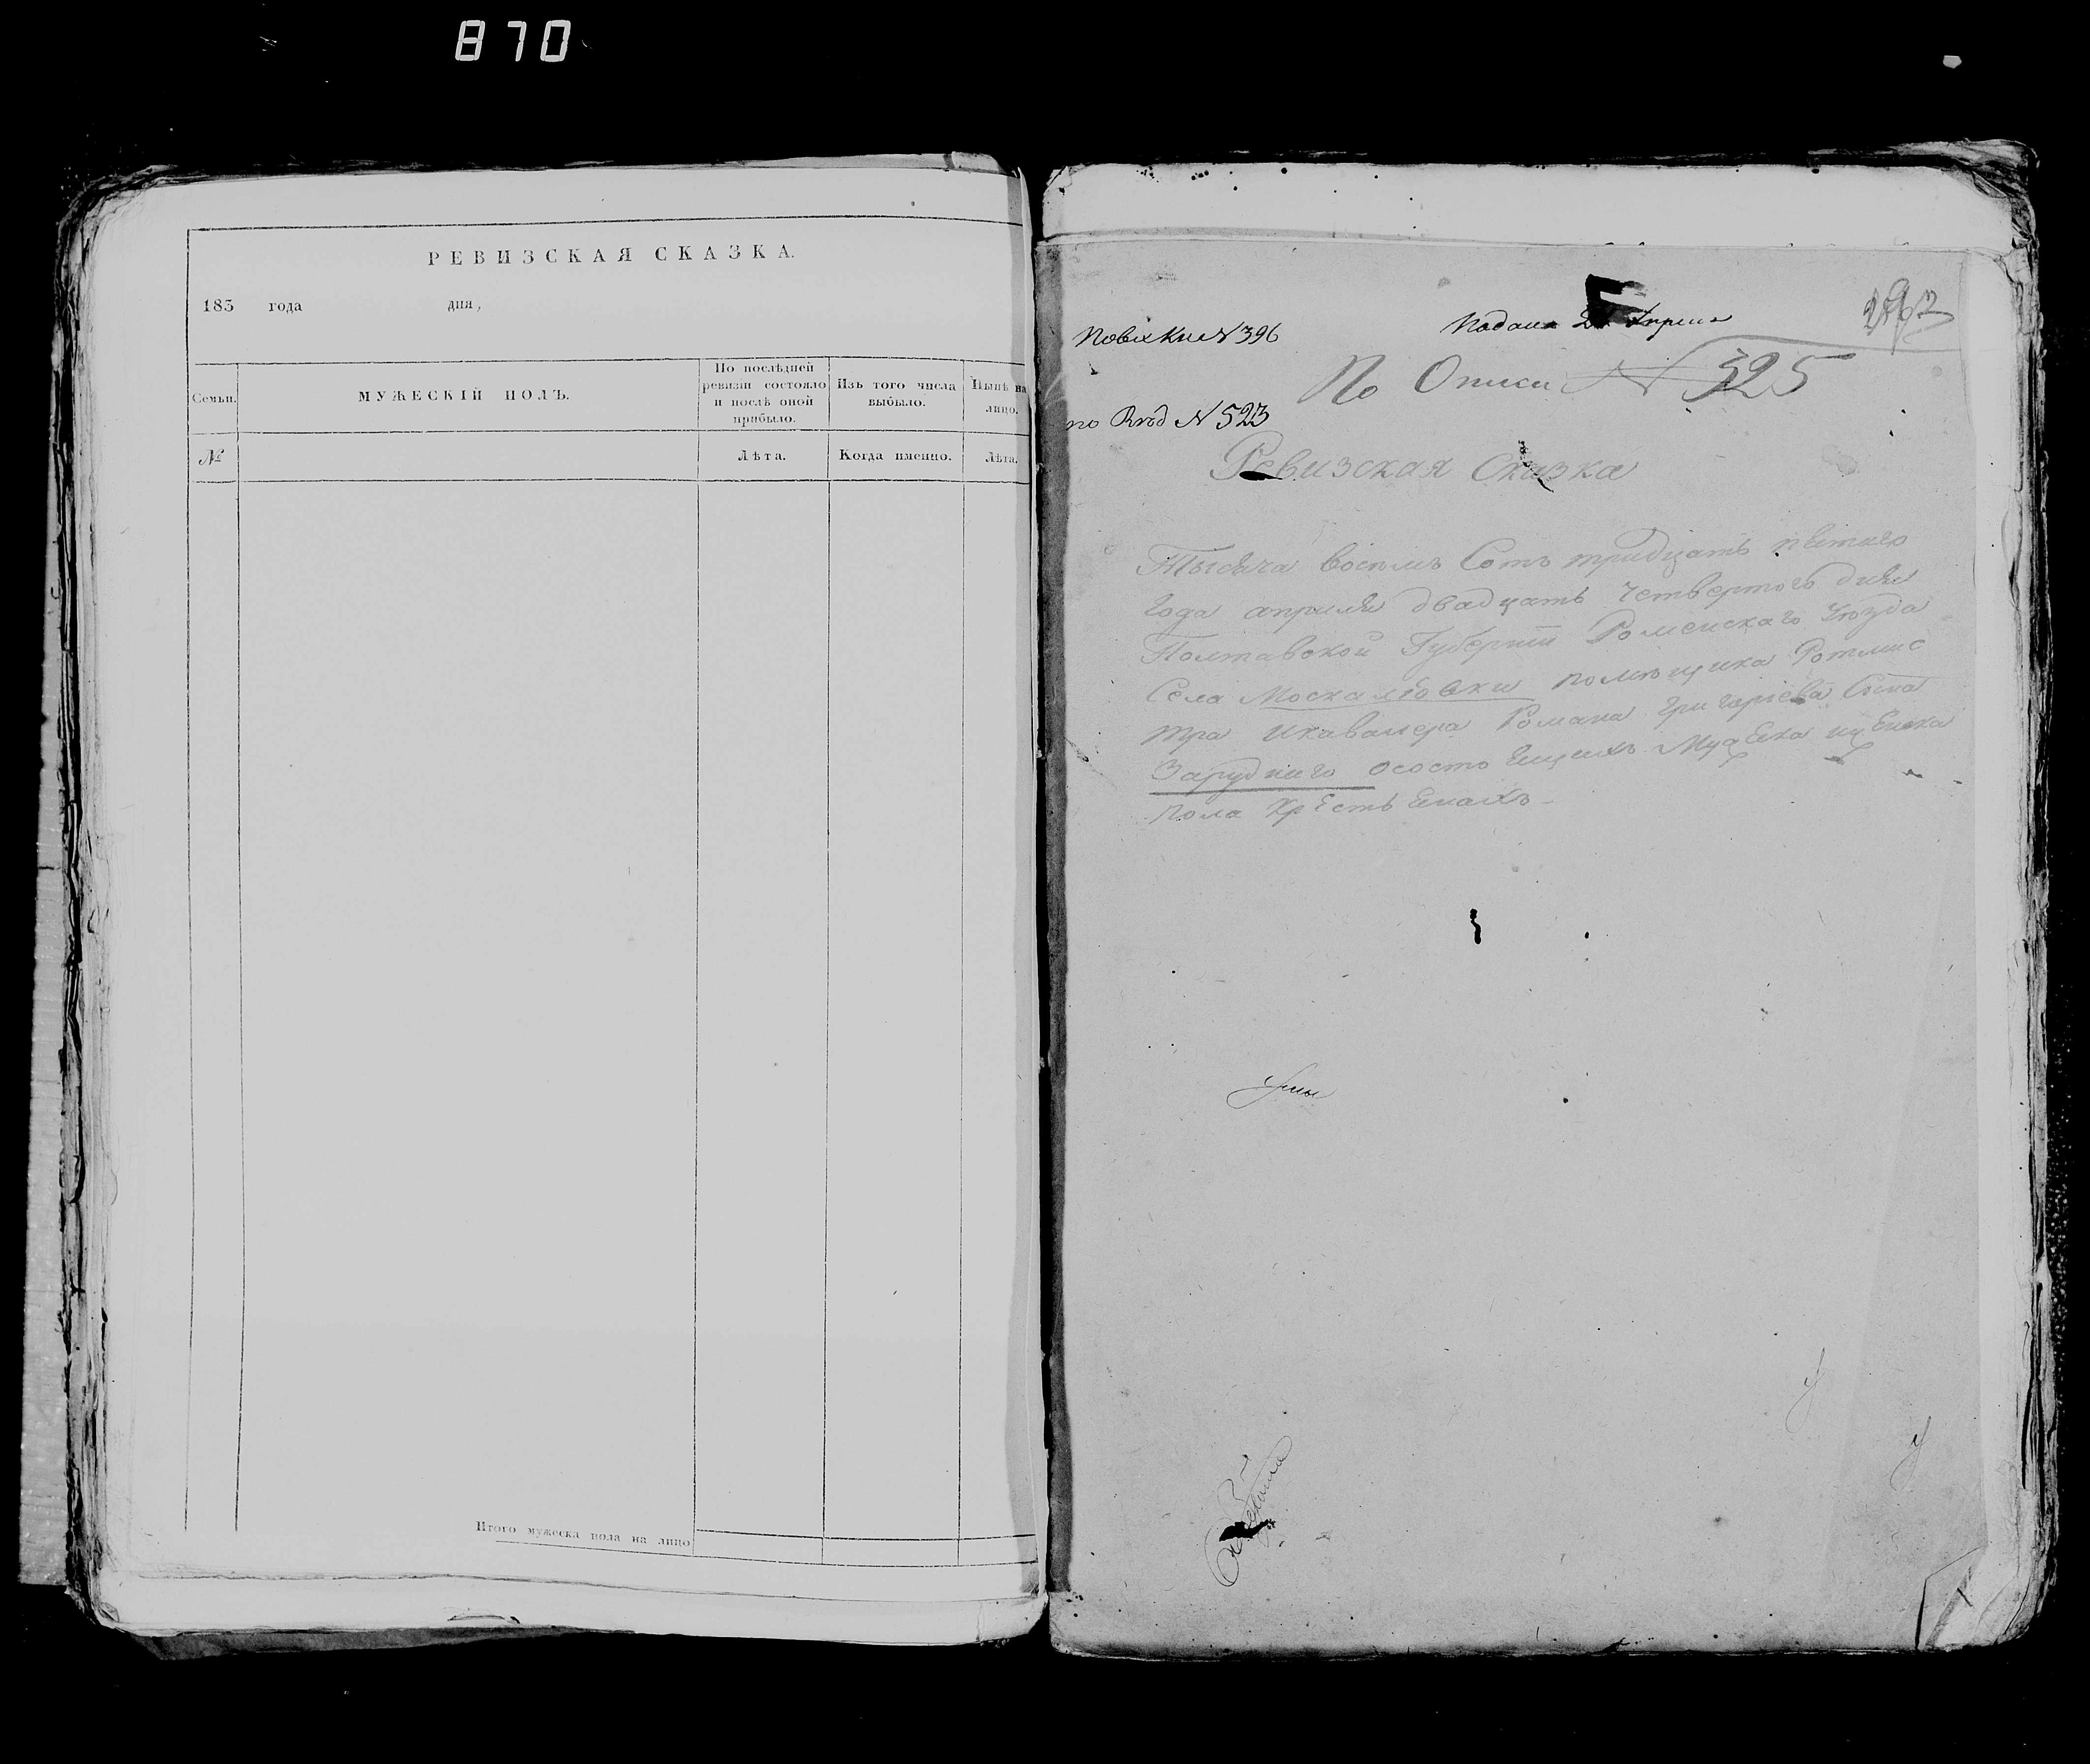 870
РЕВИЗСКАЯ СКАЗКА.
183 года дня,
Семьи.
МУЖЕСКІЙ ПОЛЪ.
По послѣдней ревизіи состояло и послѣ оной прибыло.
Изъ того числа выбыло.
Нынѣ на лицо.
№
Лѣта.
Когда именно.
Лѣта.
Итого мужеска пола на лицо
N 396
Подана Апреля
По Описи N 325
по N 523
Ревизская Сказка
Тысяча восемь Сотъ тридцать пятаго
года апреля двадцать четвертого дня
Полтавской Губерніи Роменскаго Уюзда
Села Москалювки помѣщика Ротмис
тра икавалера Романа Григорієва Сына
Заруднаго осостоящихъ Мужеска иженска
пола Крестьянахъ